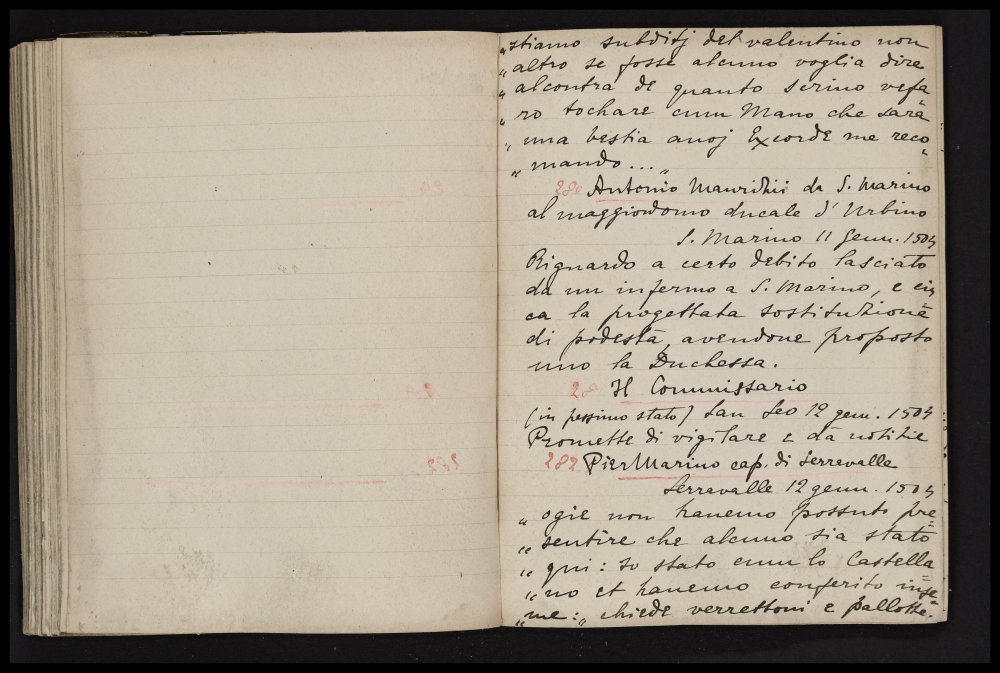 „stiamo subditj del valentino non
„altro se fosse alcuno voglia dire
„alcontra de quanto scrivo vefa=
„ro tochare cum Mano che sarà
„una bestia anoj Excorde me reco=
„mando...„
280 Antonio Mauridij da S. Marino
al maggiordomo ducale d'Urbino
S. Marino 11 Genn. 1504
Riguardo a certo debito lasciato
da un infermo a S. Marino, e cir=
ca la progettata sostituzione
di podestà, avendone proposto
uno la Duchessa.
28 Il Commissario
(in pessimo stato) San Leo 12 genn. 1504
Promette di vigilare e dà notizie
282 Pier Marino cap. di Serravalle
Serravalle 12 genn. 1504
„ogie non hanemo possuto pre=
„sentire che alcuno sia stato
„qui: so stato cum lo Castella=
„no et hanemo conferito inse=
„me:„ chiede verrettoni e pallotte.